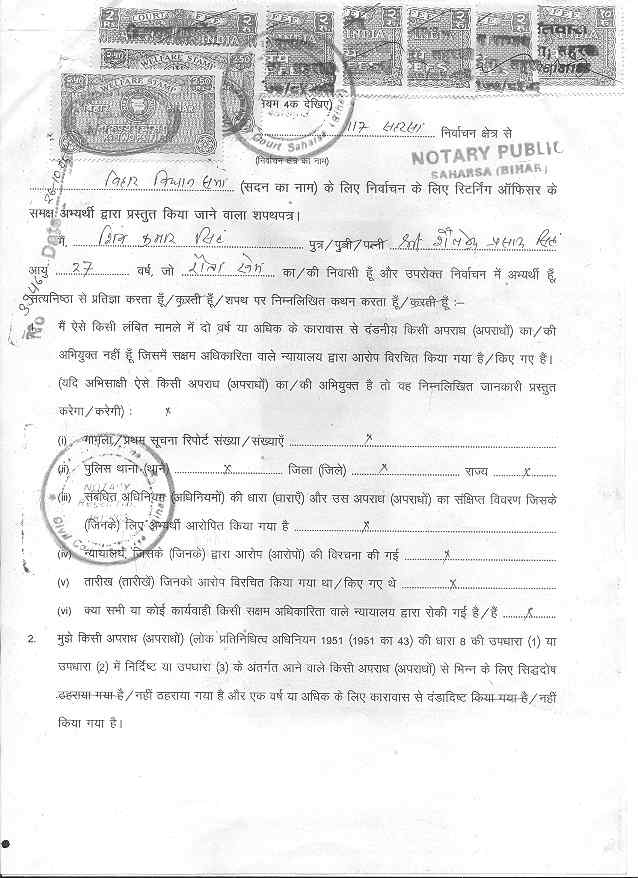 COURT FEE
INDIA
WELFARE STAMP
WELFARE STAMP
(नियम 4क देखिए)
117 सहरसा निर्वाचन क्षेत्र से
(निर्वाचन क्षेत्र का नाम)
NOTARY PUBLIC
SAHARSA (BIHAR)
बिहार विधान सभा (सदन का नाम) के लिए निर्वाचन के लिए रिटर्निंग ऑफिसर के
समक्ष अभ्यर्थी द्वारा प्रस्तुत किया जाने वाला शपथपत्र।
मैं, शिव कुमार सिंह पुत्र/पुत्री/पत्नी श्री शैलेन्द्र प्रसाद सिंह
आयु 27 वर्ष, जो का/की निवासी हूँ और उपरोक्त निर्वाचन में अभ्यर्थी हूँ,
सत्यनिष्ठा से प्रतिज्ञा करता हूँ/करती हूँ/शपथ पर निम्नलिखित कथन करता हूँ/करती हूँ :–
मैं ऐसे किसी लंबित मामले में दो वर्ष या अधिक के कारावास से दंडनीय किसी अपराध (अपराधों) का/की
अभियुक्त नहीं हूँ जिसमें सक्षम अधिकारिता वाले न्यायालय द्वारा आरोप विरचित किया गया है/किए गए हैं।
(यदि अभिसाक्षी ऐसे किसी अपराध (अपराधों) का/की अभियुक्त है तो वह निम्नलिखित जानकारी प्रस्तुत
करेगा/करेगी) : x
(i) मामला/प्रथम सूचना रिपोर्ट संख्या/संख्याएँ x
(ii) पुलिस थाना (थाने) x जिला (जिले) x राज्य x
(iii) संबंधित अधिनियम (अधिनियमों) की धारा (धाराएँ) और उस अपराध (अपराधों) का संक्षिप्त विवरण जिसके
(जिनके) लिए अभ्यर्थी आरोपित किया गया है x
(iv) न्यायालय, जिसके (जिनके) द्वारा आरोप (आरोपों) की विरचना की गई x
(v) तारीख (तारीखें) जिनको आरोप विरचित किया गया था/किए गए थे x
(vi) क्या सभी या कोई कार्यवाही किसी सक्षम अधिकारिता वाले न्यायालय द्वारा रोकी गई है/हैं x
2. मुझे किसी अपराध (अपराधों) (लोक प्रतिनिधित्व अधिनियम 1951 (1951 का 43) की धारा 8 की उपधारा (1) या
उपधारा (2) में निर्दिष्ट या उपधारा (3) के अंतर्गत आने वाले किसी अपराध (अपराधों) से भिन्न के लिए सिद्धदोष
ठहराया गया है/नहीं ठहराया गया है और एक वर्ष या अधिक के लिए कारावास से दंडादिष्ट किया गया है/नहीं
किया गया है।